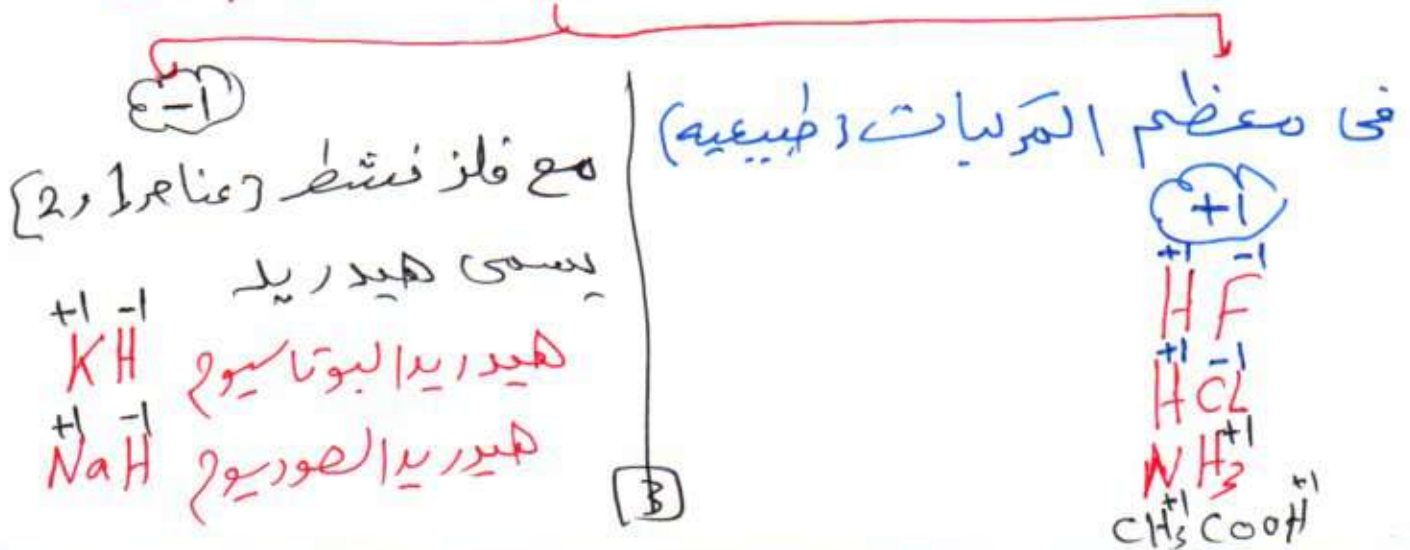 فى معظم المركبات (طبيعيه)
+1
+1 -1
H F
+1 -1
H Cl
+1
N H3
+1 +1
CH3 COOH
-1
مع فلز نشط [عناصر 1 و 2]
يسمى هيدريد
+1 -1
KH هيدريد البوتاسيوم
+1 -1
NaH هيدريد الصوديوم
3